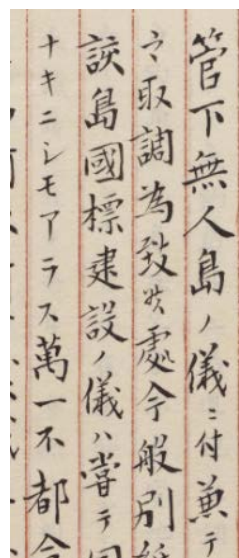 管下無人島ノ儀ニ付兼テ
々取調為致候處今般別
該島國標建設ノ儀ハ嘗テ
ナキニシモアラス萬一不都合